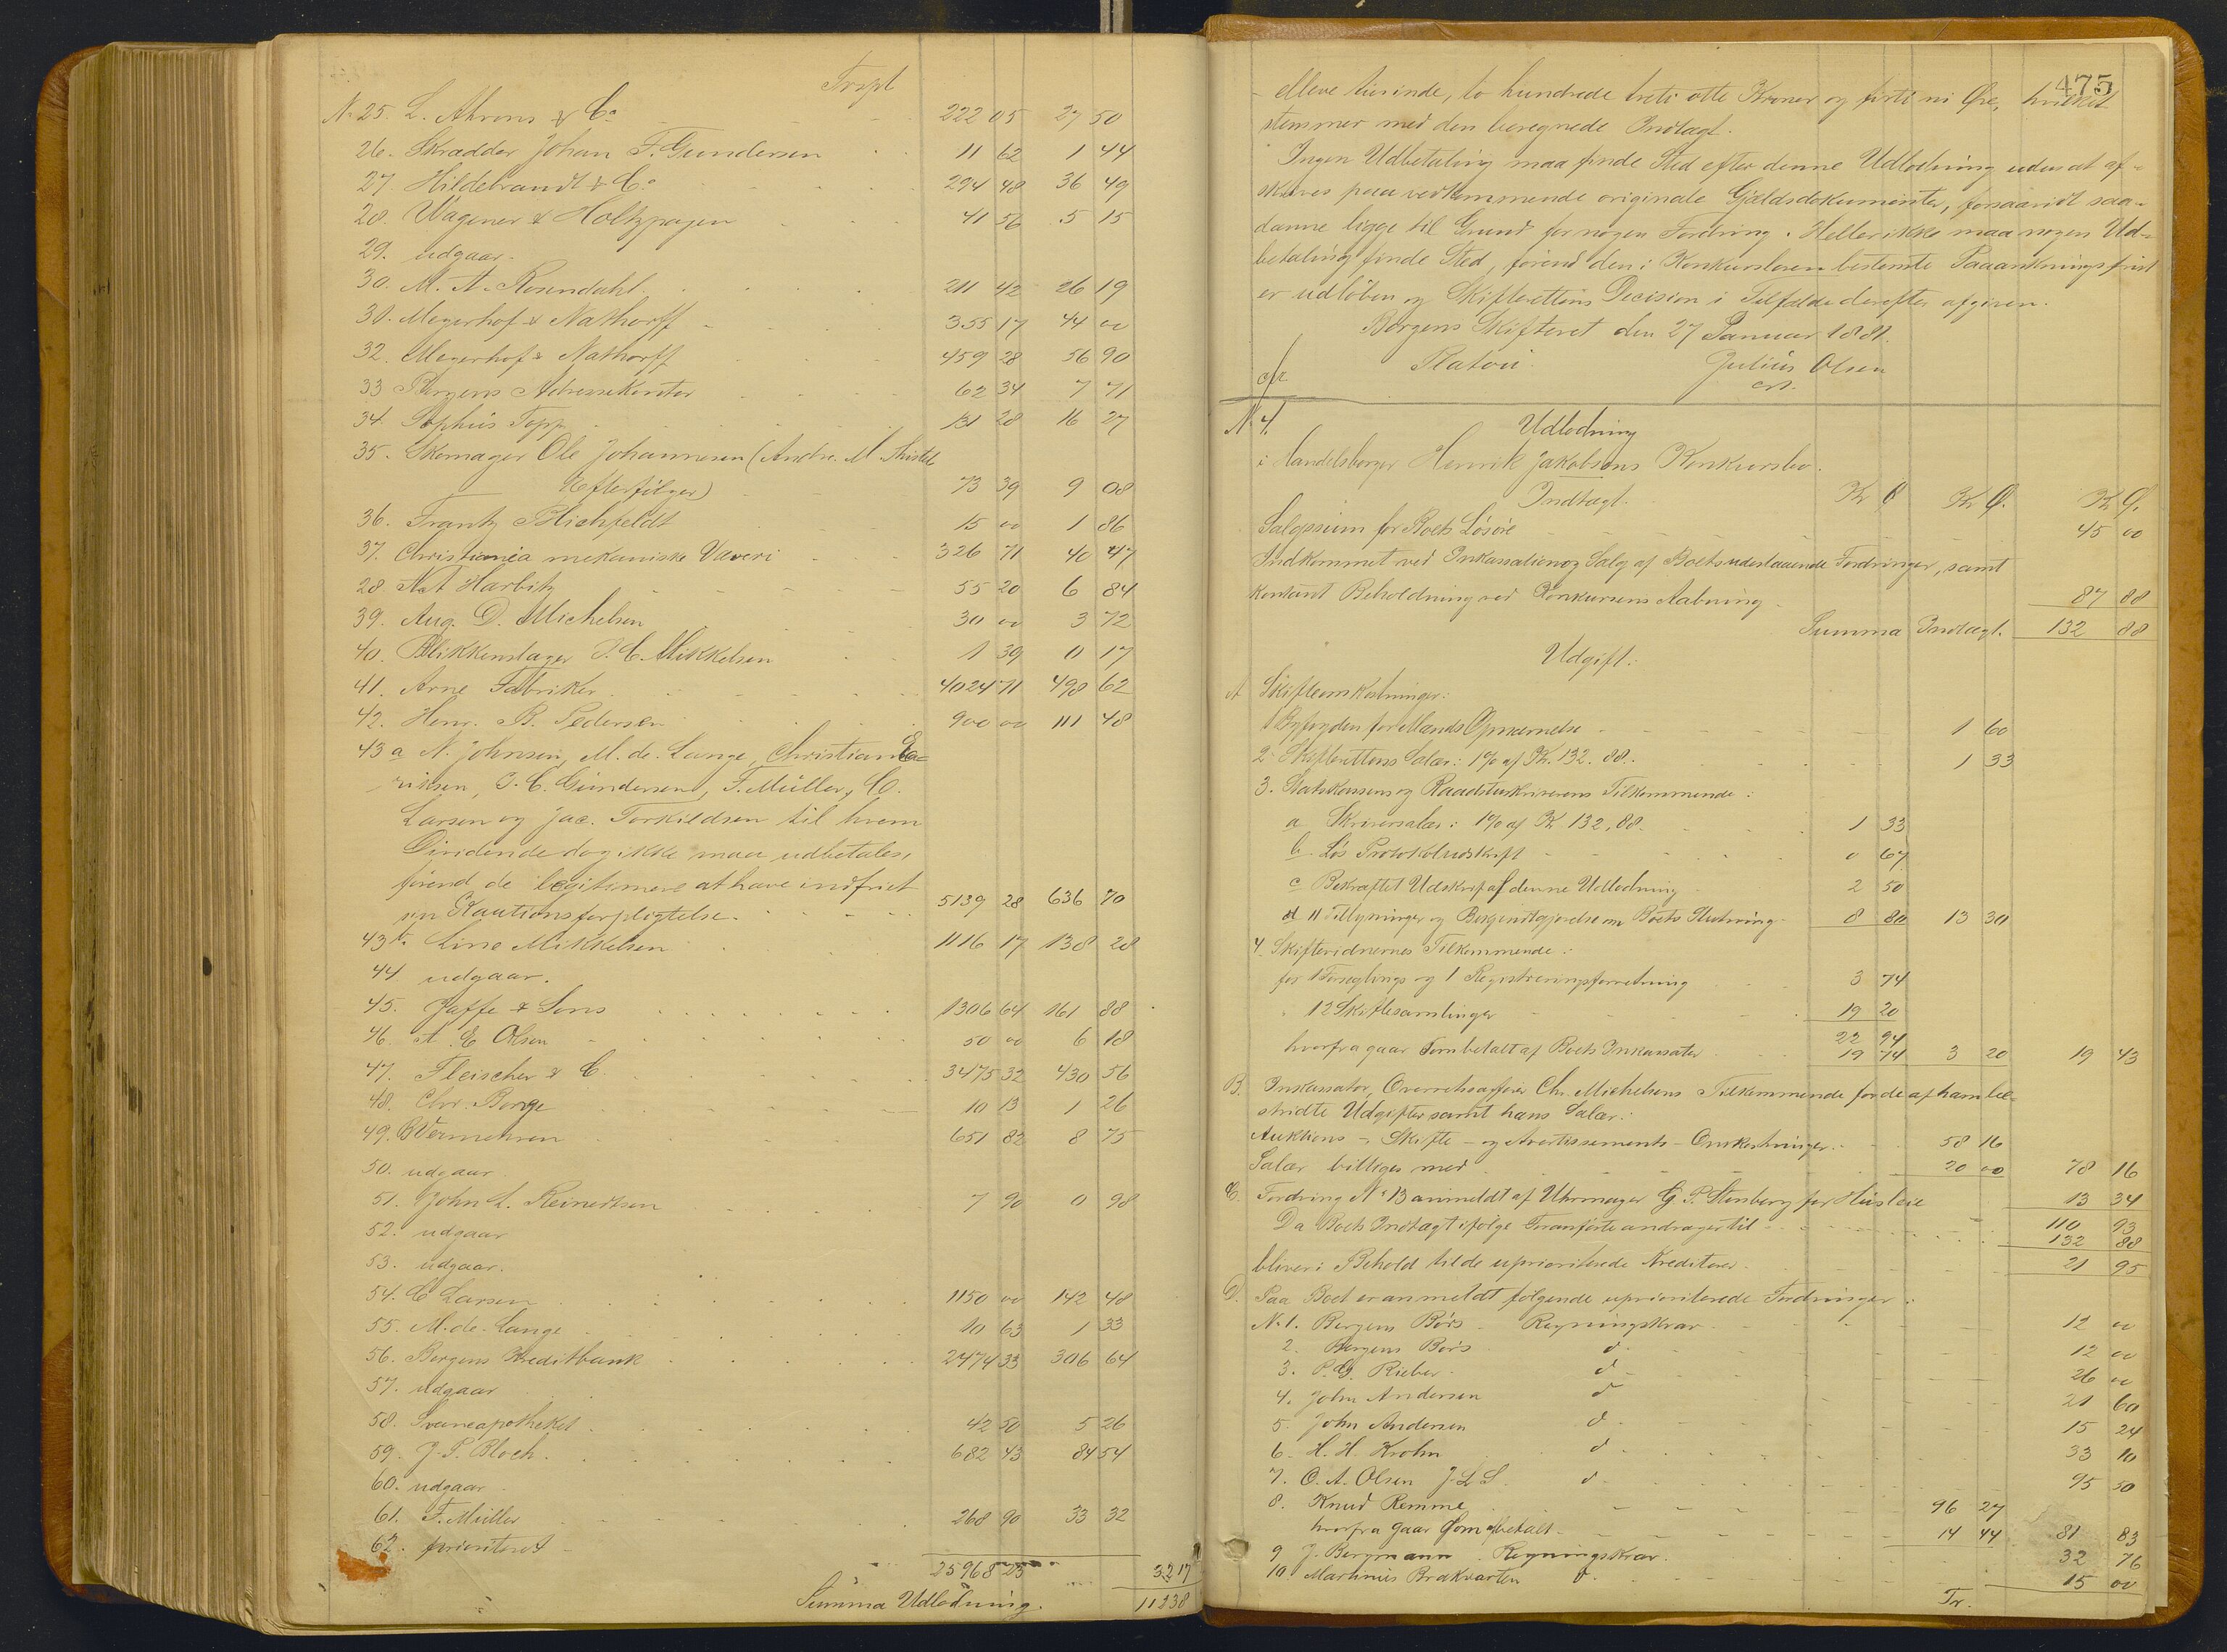 Trspt
No 25. L. Ahrens & Co 222 05 27 50
26. Skrædder Johan F. Gundersen 11 62 1 44
27. Hildebrandt & Co 294 48 36 49
28. Wagener & Holtzpagen 41 56 5 15
29. udgaar.
30. M. A. Rosendahl 211 42 26 19
31. Meyerhof & Nathorff 355 17 44 00
32. Meyerhof & Nathorff 459 28 56 90
33 Bergens Adressekontor 62 34 7 71
34. Sophus Topp 131 28 16 27
35. Skomager Ole Johannesen (Andr. M.
Efterfølger) 73 39 9 08
36. Frantz Blichfeldt 15 00 1 86
37. Christiania mekaniske Væveri 326 71 40 47
28 Nat Harbitz 55 20 6 84
39. Aug. D. Michelsen 30 00 3 72
40. Blikkenslager J. C. Mikkelsen 1 39 0 17
41. Arne Fabriker 4024 71 498 62
42. Henr. B. Pedersen 900 00 111 48
43 a N. Johnsen, M. de Lange, Christian
, J. C. Gundersen, F. Müller, C.
Larsen og Jac. Torkildsen til hvem
Dividende dog ikke maa udbetales,
førend de legitimere at have indfriet
sin Kautionsforpligtelse. 5139 28 636 70
43b. Line Mikkelsen 1116 17 138 28
44. udgaar.
45. Jaffe & Sons 1306 64 161 88
46. A E Olsen 50 00 6 18
47. Fleischer & C. 3475 32 430 56
48. Chr. Borge 10 13 1 26
49. C Vermehren 651 82 8 75
50. udgaar.
51. John L. Reinertsen 7 90 0 98
52. udgaar
53. udgaar.
54. C Larsen 1150 00 142 48
55. M. de Lange 10 63 1 33
56. Bergens Kreditbank 2474 33 306 64
57. udgaar
58. Svaneapotheket 42 50 5 26
59. J. P. Bloch. 682 43 84 54
60. udgaar
61. F. Müller 268 90 33 32
62. prioriteret
25968 25 3217
Summa Udlodning. 11238
475
elleve tusinde, to hundrede treti otte Kroner og firti ni Øre, hvilket
stemmer med den beregnede Indtægt.
Ingen Udbetaling maa finde Sted efter denne Udlodning uden at af-
skrives paa vedkommende originale Gjældsdokumenter, forsaavidt saa-
danne ligge til Grund for nogen Fordring. Heller ikke maa nogen Ud-
betaling finde Sted, førend den i Konkursloven bestemte Paaankningsfrist
er udløben og Skifterettens Decision i Tilfælde derefter afgiven.
Bergens Skifteret den 27 Januar 1881.
Platou. Julius Olsen
cst.
cfr.
No 4. Udlodning
i Handelsborger Henrik Jakobsens Konkursbo.
Indtægt. Kr Ø Kr Ø. Kr Ø.
Salgssum for Boets Løsøre 45 00
Indkommet ved Inkassation og Salg af Boets udestaaende Fordringer, samt
Kontant Beholdning ved Konkursens Aabning 87 88
Summa Indtægt. 132 88
Udgift.
A Skifteomkostninger:
1 Byfogden for Mands Opnævnelse 1 60
2. Skifterettens Salær: 1% af Kr. 132. 88. 1 33
3. Statskassens og Raadstuskriverens Tilkommende:
a Skriversalær: 1% af Kr 132,88. 1 33
b. Løs Protokoludskrift 0 67
c Bekræftet Udskrift af denne Udlodning 2 50
d 11 Tillysninger og Bekjendtgjørelse om Boets Slutning 8 80 13 30
4. Skiftevidnernes Tilkommende:
for 1 Forseglings og 1 Registreringsforretning 3 74
12 Skiftesamlinger 19 20
22 94
hvorfra gaar som betalt af Boets Inkassator 19 74 3 20 19 43
B. Inkassator, Overretssagfører Chr. Michelsens Tilkommende for de af ham be-
stridte Udgifter samt hans Salær:
Auktions - Skifte - og Avertissements - Omkostninger. 58 16
Salær billiges med 20 00 78 16
C. Fordring No 13 anmeldt af Uhrmager G. P. Stensberg for Husleie 13 34
110 93
Da Boets Indtægt ifølge Foranførte andrager til 132 88
bliver i Behold til de uprioriterede Kreditorer 21 95
D. Paa Boet er anmeldt følgende uprioriterede Fordringer:
No 1. Bergens Børs Regningskrav 12 00
2. Bergens Børs do 12 00
3. P. G. Rieber do 26 00
4. John Andersen do 21 60
5. John Andersen do 15 24
6. H. H. Krohn do 33 10
7. O. A. Olsen J. L. S. do 95 50
8. Knud Remme 96 27
hvorfra gaar som betalt 14 44 81 83
9 J. Bergmann Regningskrav 32 76
10 Martinus Brakvarten do 15 00
Tr.